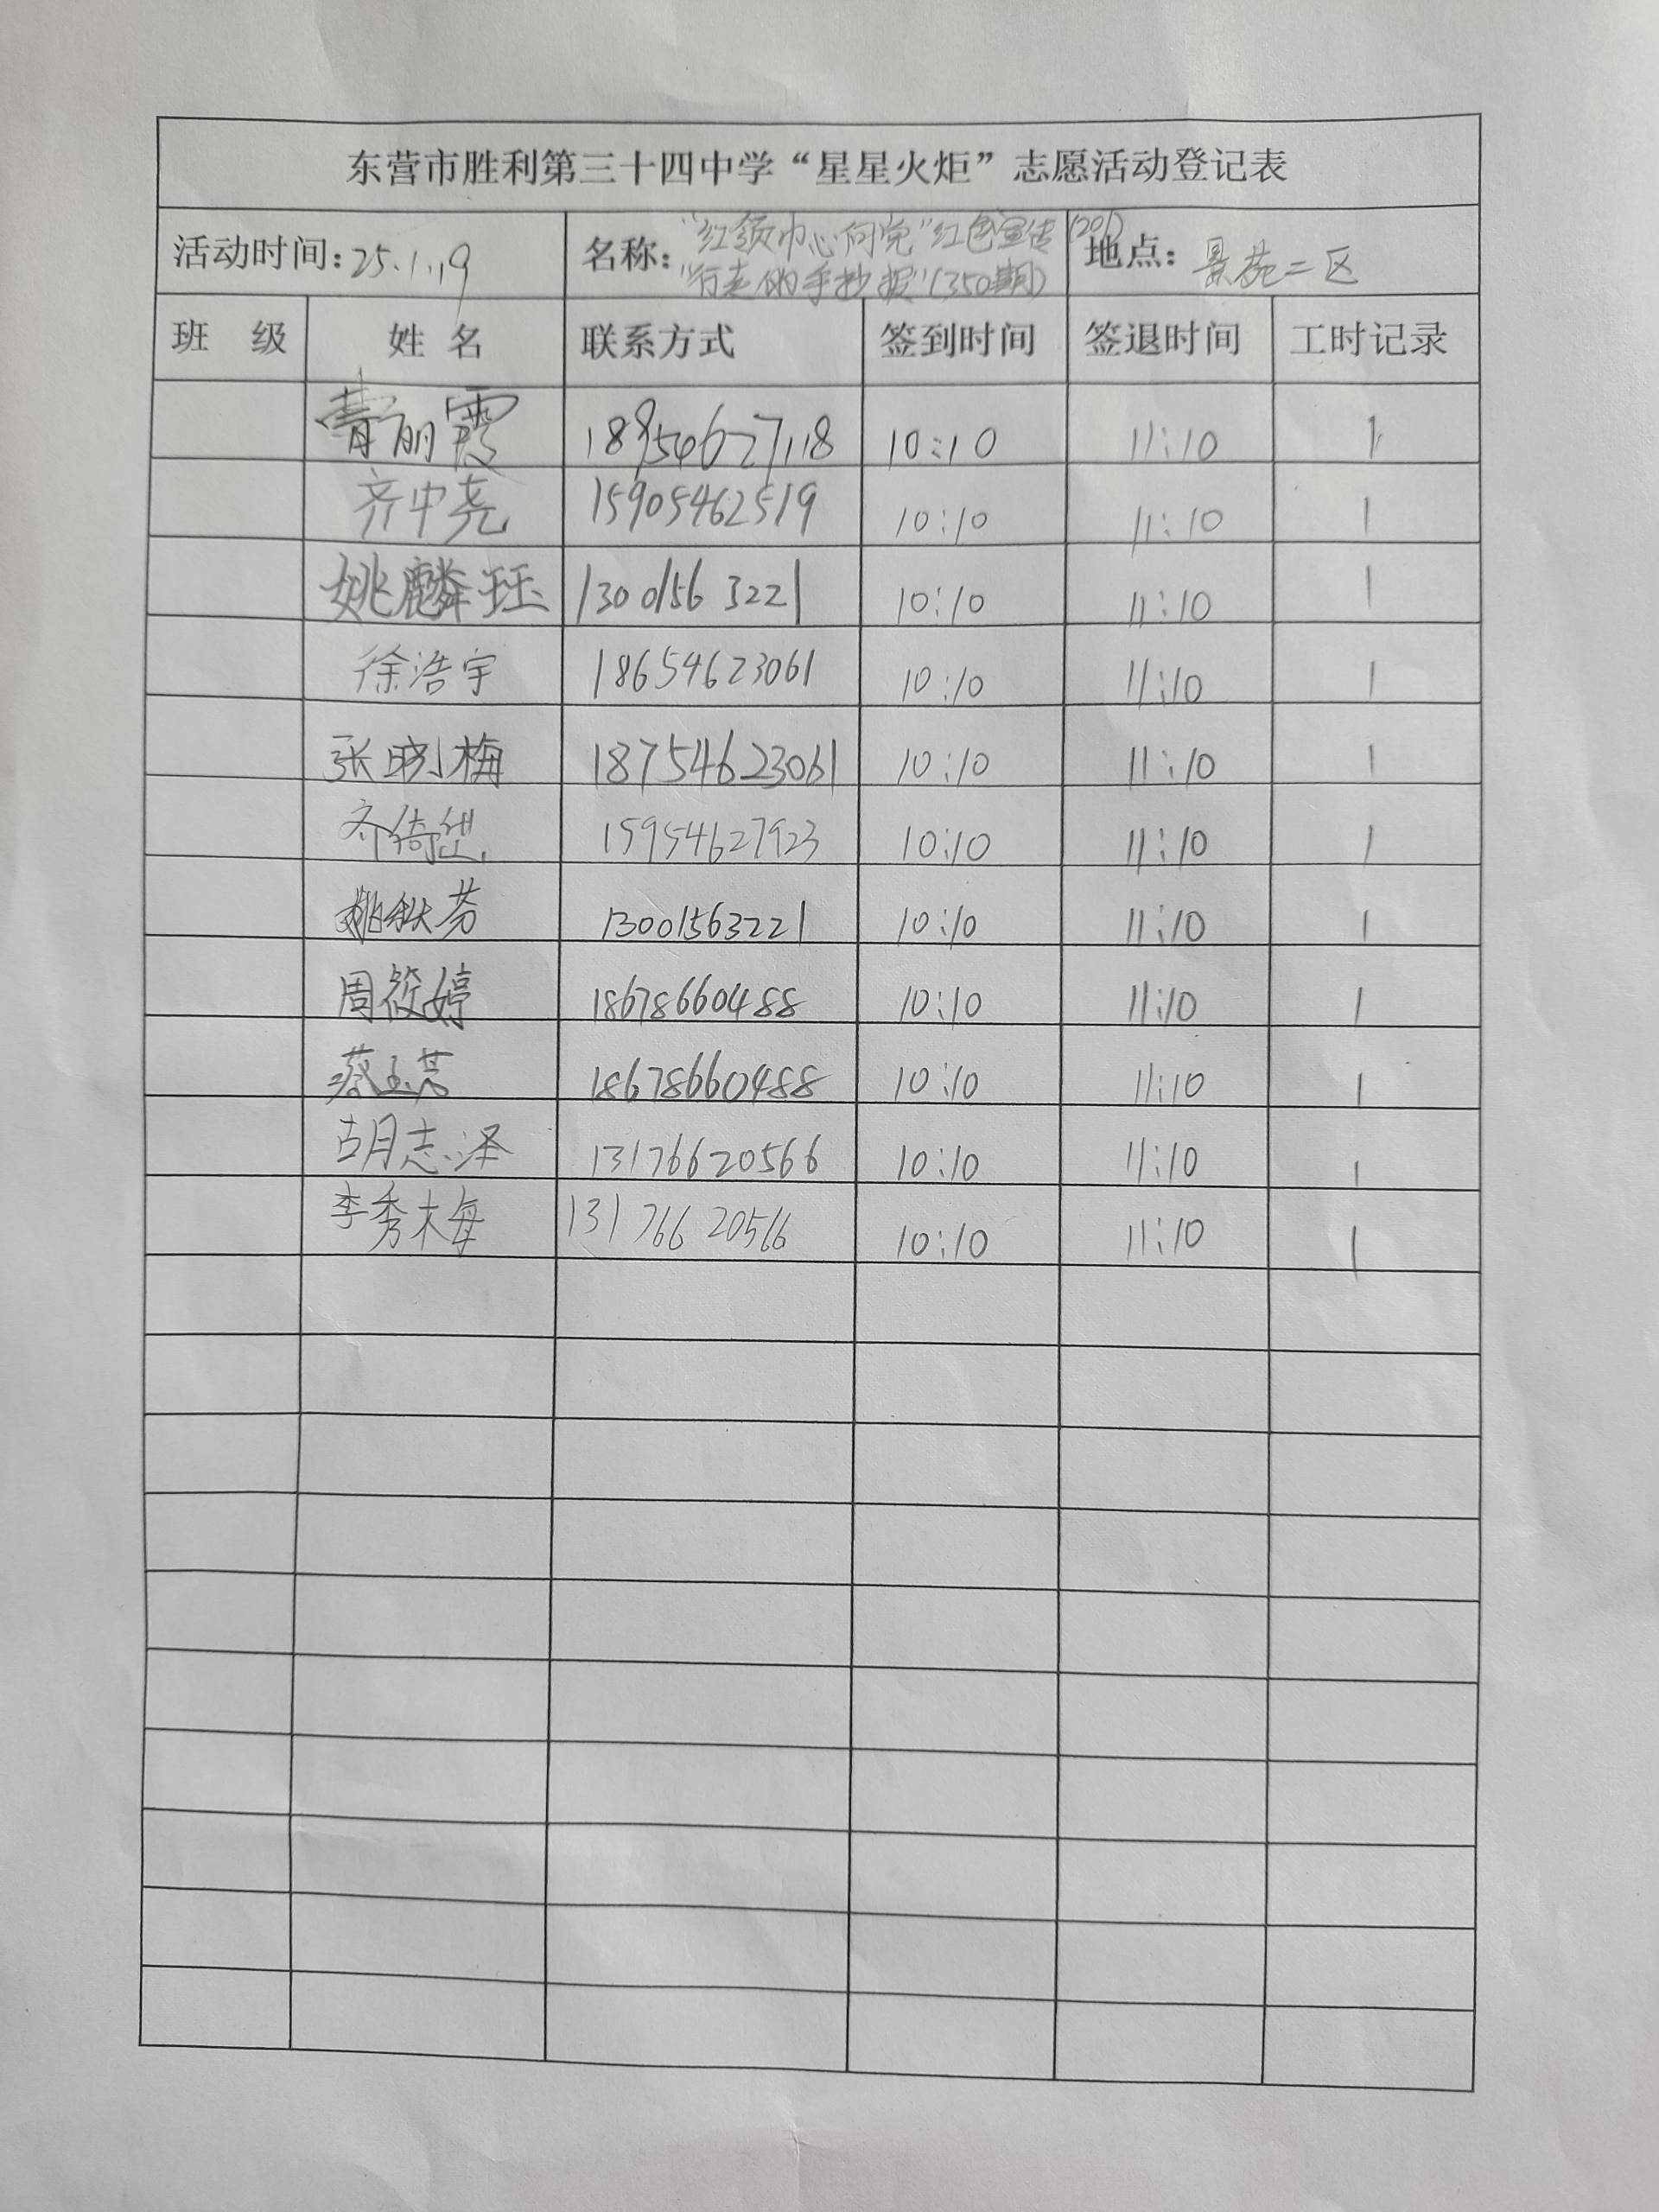 东营市胜利第三十四中学“星星火炬”志愿活动登记表
活动时间:25.1.19 名称:“红领巾心向党”红色宣传(201) “行走的手抄报”(350期) 地点:景苑二区
班 级 姓 名 联系方式 签到时间 签退时间 工时记录
丽霞 18954627118 10:10 11:10 1
齐中尧 15905462519 10:10 11:10 1
姚麟珏 13001563221 10:10 11:10 1
徐浩宇 18654623061 10:10 11:10 1
张晓梅 18754623061 10:10 11:10 1
齐绮 15954627923 10:10 11:10 1
姚秋芬 13001563221 10:10 11:10 1
周筱婷 18678660488 10:10 11:10 1
蔡玉芳 18678660488 10:10 11:10 1
胡志泽 13176620566 10:10 11:10 1
李秀梅 13176620566 10:10 11:10 1